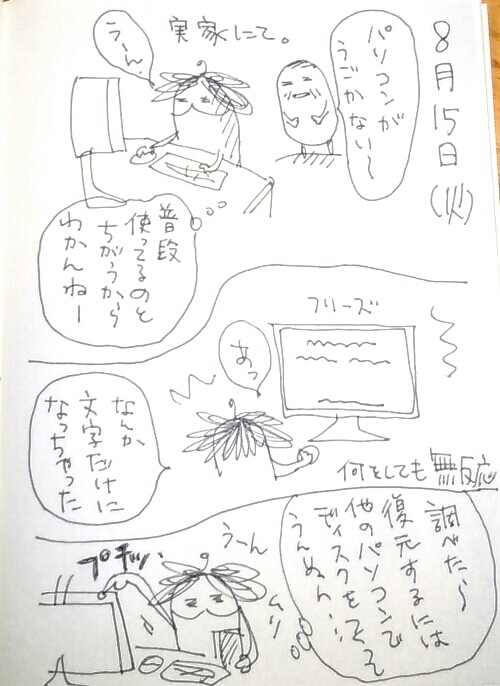 8月15日(火)
実家にて。
パソコンが
うごかない〜
うーん
普段
使ってるのと
ちがうから
わかんねー
フリーズ
あっ
なんか
文字だけに
なっちゃった
何をしても無反応
調べた〜
復元するには
他のパソコンで
ディスクをこそ
うんぬん…
うーん
ムリ
プチッ